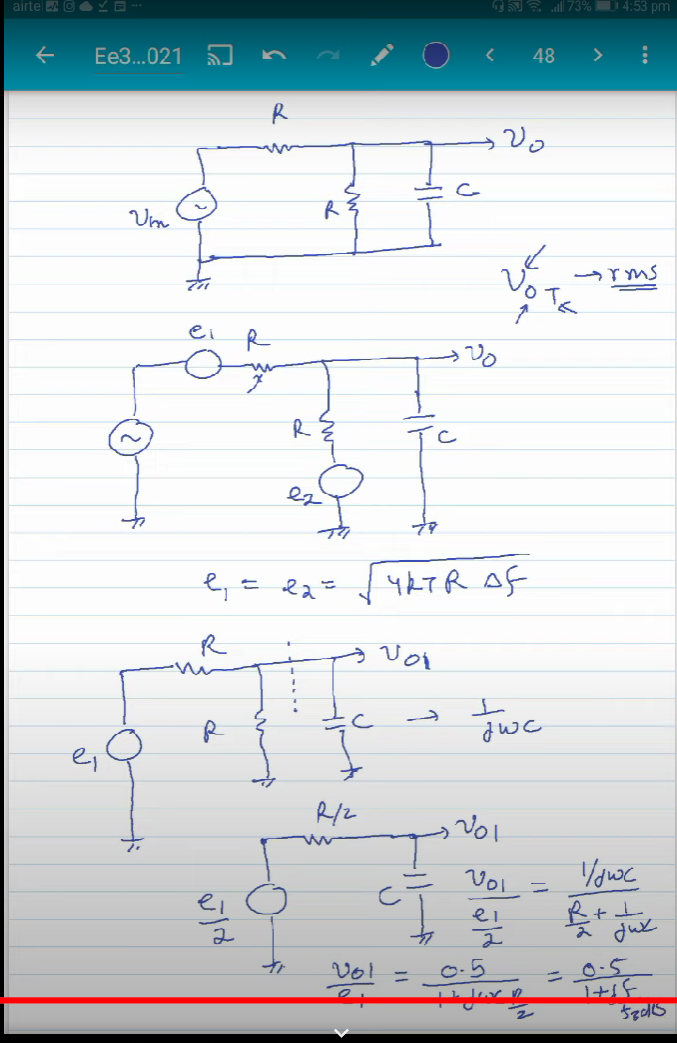 airtel 73% 4:53 pm
Ee3...021 48
R
V₀
Vin R C
V₀ T → rms
e₁ R
V₀
R C
e₂
e₁ = e₂ = √4kTR Δf
R
V₀₁
R C → 1/jωC
e₁
R/2
V₀₁
e₁/2 C V₀₁/(e₁/2) = (1/jωC)/(R/2 + 1/jωC)
V₀₁/e₁ = 0.5/(1+jωC R/2) = 0.5/(1+jf/f3dB)